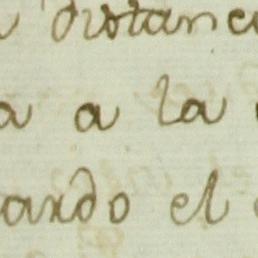 distanc
a a la
ando el